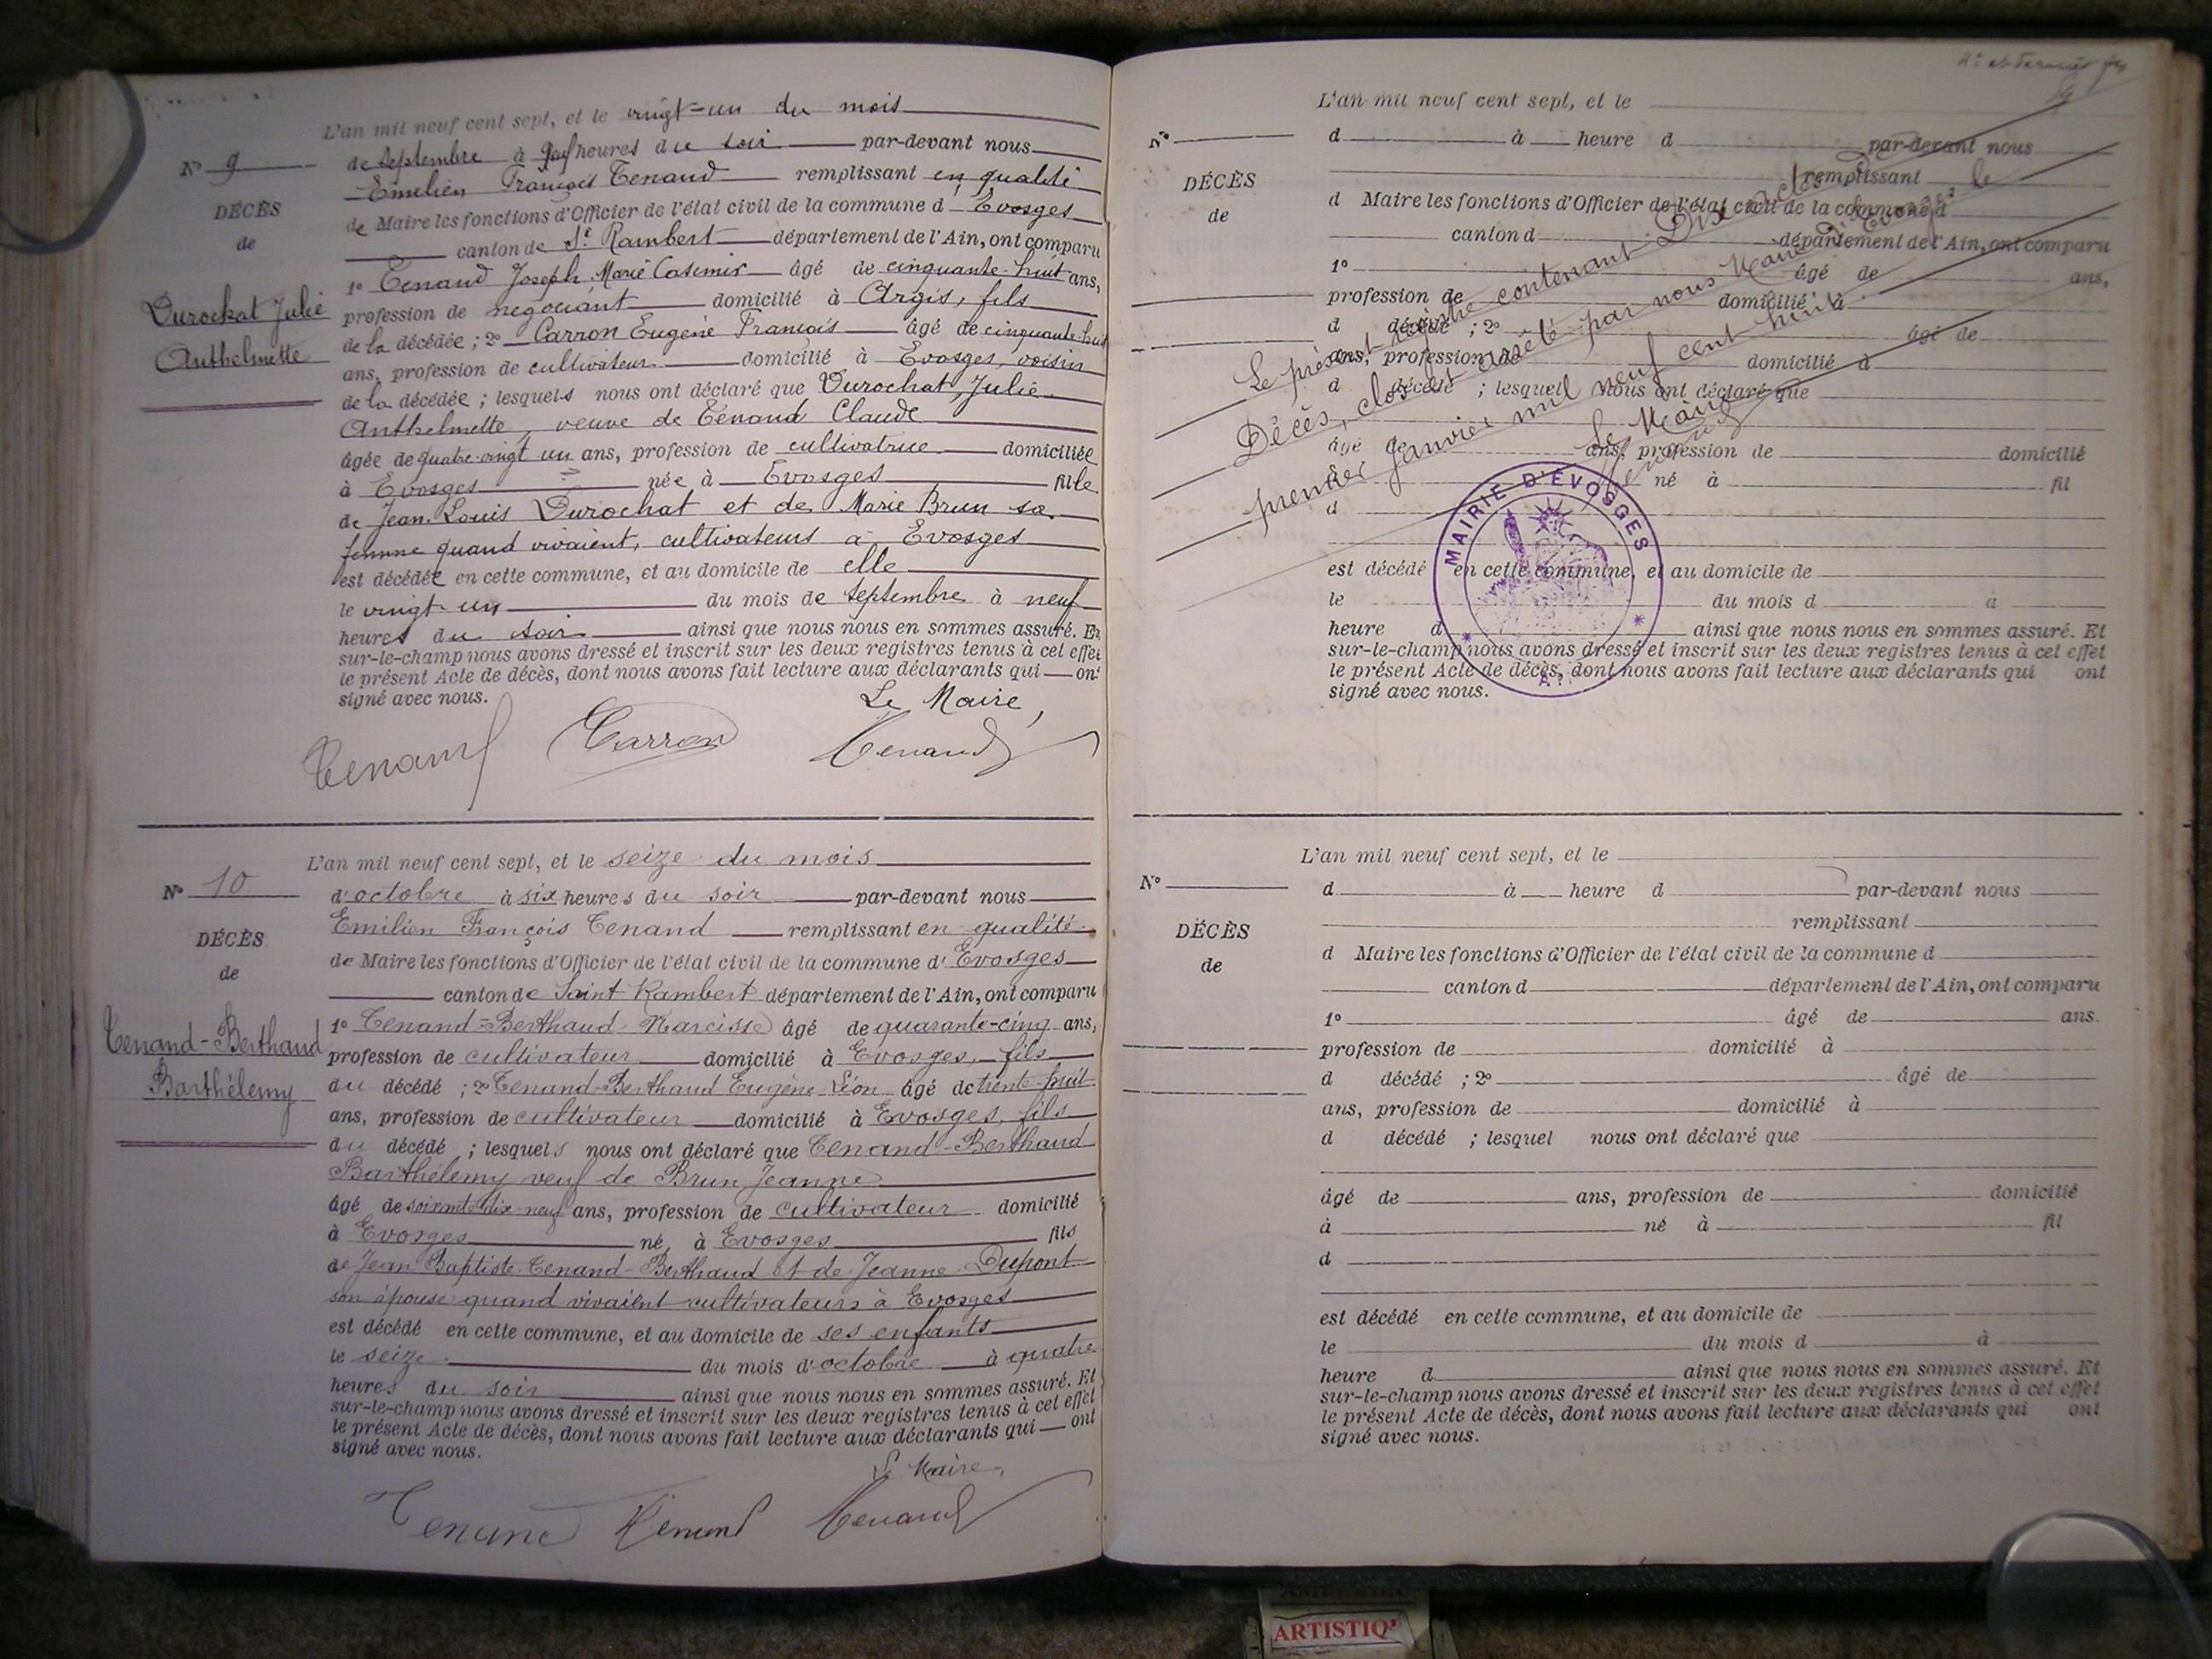 L'an mil neuf cent sept, et le vingt-un du mois
N° 9
de septembre à heures du soir par-devant nous
DÉCÈS
de
Emilien François Tenand remplissant en qualité
de Maire les fonctions d'Officier de l'état civil de la commune d'Evosges
canton de St Rambert département de l'Ain, ont comparu
1° Tenand Joseph Marie Casimir âgé de cinquante-huit ans,
Durochat Julie
Anthelmette
profession de négociant domicilié à Argis, fils
de la décédée ; 2° Carron Eugène François âgé de cinquante-huit
ans, profession de cultivateur domicilié à Evosges, voisin
de la décédée ; lesquels nous ont déclaré que Durochat, Julie
Anthelmette, veuve de Tenand Claude
âgée de quatre-vingt un ans, profession de cultivatrice domiciliée
à Evosges née à Evosges fille
de Jean-Louis Durochat et de Marie Brun sa
femme quand vivaient, cultivateurs à Evosges
est décédée en cette commune, et au domicile de elle
le vingt-un du mois de septembre à neuf
heures du soir ainsi que nous nous en sommes assuré. Et
sur-le-champ nous avons dressé et inscrit sur les deux registres tenus à cet effet
le présent Acte de décès, dont nous avons fait lecture aux déclarants qui ont
signé avec nous.
Le Maire,
Tenand Carron Tenand
L'an mil neuf cent sept, et le seize du mois
N° 10
d'octobre à six heures du soir par-devant nous
DÉCÈS
de
Emilien François Tenand remplissant en qualité
de Maire les fonctions d'Officier de l'état civil de la commune d'Evosges
canton de Saint Rambert département de l'Ain, ont comparu
1° Tenand-Berthaud Narcisse âgé de quarante-cinq ans,
Tenand-Berthaud
Barthélemy
profession de cultivateur domicilié à Evosges, fils
du décédé ; 2° Tenand-Berthaud Eugène Léon âgé de trente-huit
ans, profession de cultivateur domicilié à Evosges, fils
du décédé ; lesquels nous ont déclaré que Tenand-Berthaud
Barthélemy veuf de Brun Jeanne
âgé de soixante dix-neuf ans, profession de cultivateur domicilié
à Evosges né à Evosges fils
de Jean Baptiste Tenand-Berthaud et de Jeanne Dupont
son épouse quand vivaient cultivateurs à Evosges
est décédé en cette commune, et au domicile de ses enfants
le seize du mois d'octobre à quatre
heures du soir ainsi que nous nous en sommes assuré. Et
sur-le-champ nous avons dressé et inscrit sur les deux registres tenus à cet effet
le présent Acte de décès, dont nous avons fait lecture aux déclarants qui ont
signé avec nous.
Le Maire,
Tenand Tenand Tenand
4e et dernier
L'an mil neuf cent sept, et le
N°
d à heure d par-devant nous
DÉCÈS
de
remplissant
d Maire les fonctions d'Officier de l'état civil de la commune d
canton d département de l'Ain, ont comparu
1° âgé de ans,
profession de domicilié à
d décédé ; 2° âgé de
ans, profession de domicilié à
d décédé ; lesquel nous ont déclaré que
âgé de ans, profession de domicilié
à né à fil
d
est décédé en cette commune, et au domicile de
le du mois d à
heure d ainsi que nous nous en sommes assuré. Et
sur-le-champ nous avons dressé et inscrit sur les deux registres tenus à cet effet
le présent Acte de décès, dont nous avons fait lecture aux déclarants qui ont
signé avec nous.
Le présent registre contenant Dix actes de
Décès, clos et arrêté par nous Maire d'Evosges le
premier Janvier mil neuf cent huit
Le Maire
Tenand
MAIRIE D'ÉVOSGES
L'an mil neuf cent sept, et le
N°
d à heure d par-devant nous
DÉCÈS
de
remplissant
d Maire les fonctions d'Officier de l'état civil de la commune d
canton d département de l'Ain, ont comparu
1° âgé de ans.
profession de domicilié à
d décédé ; 2° âgé de
ans, profession de domicilié à
d décédé ; lesquel nous ont déclaré que
âgé de ans, profession de domicilié
à né à fil
d
est décédé en cette commune, et au domicile de
le du mois d à
heure d ainsi que nous nous en sommes assuré. Et
sur-le-champ nous avons dressé et inscrit sur les deux registres tenus à cet effet
le présent Acte de décès, dont nous avons fait lecture aux déclarants qui ont
signé avec nous.
ARTISTIQ